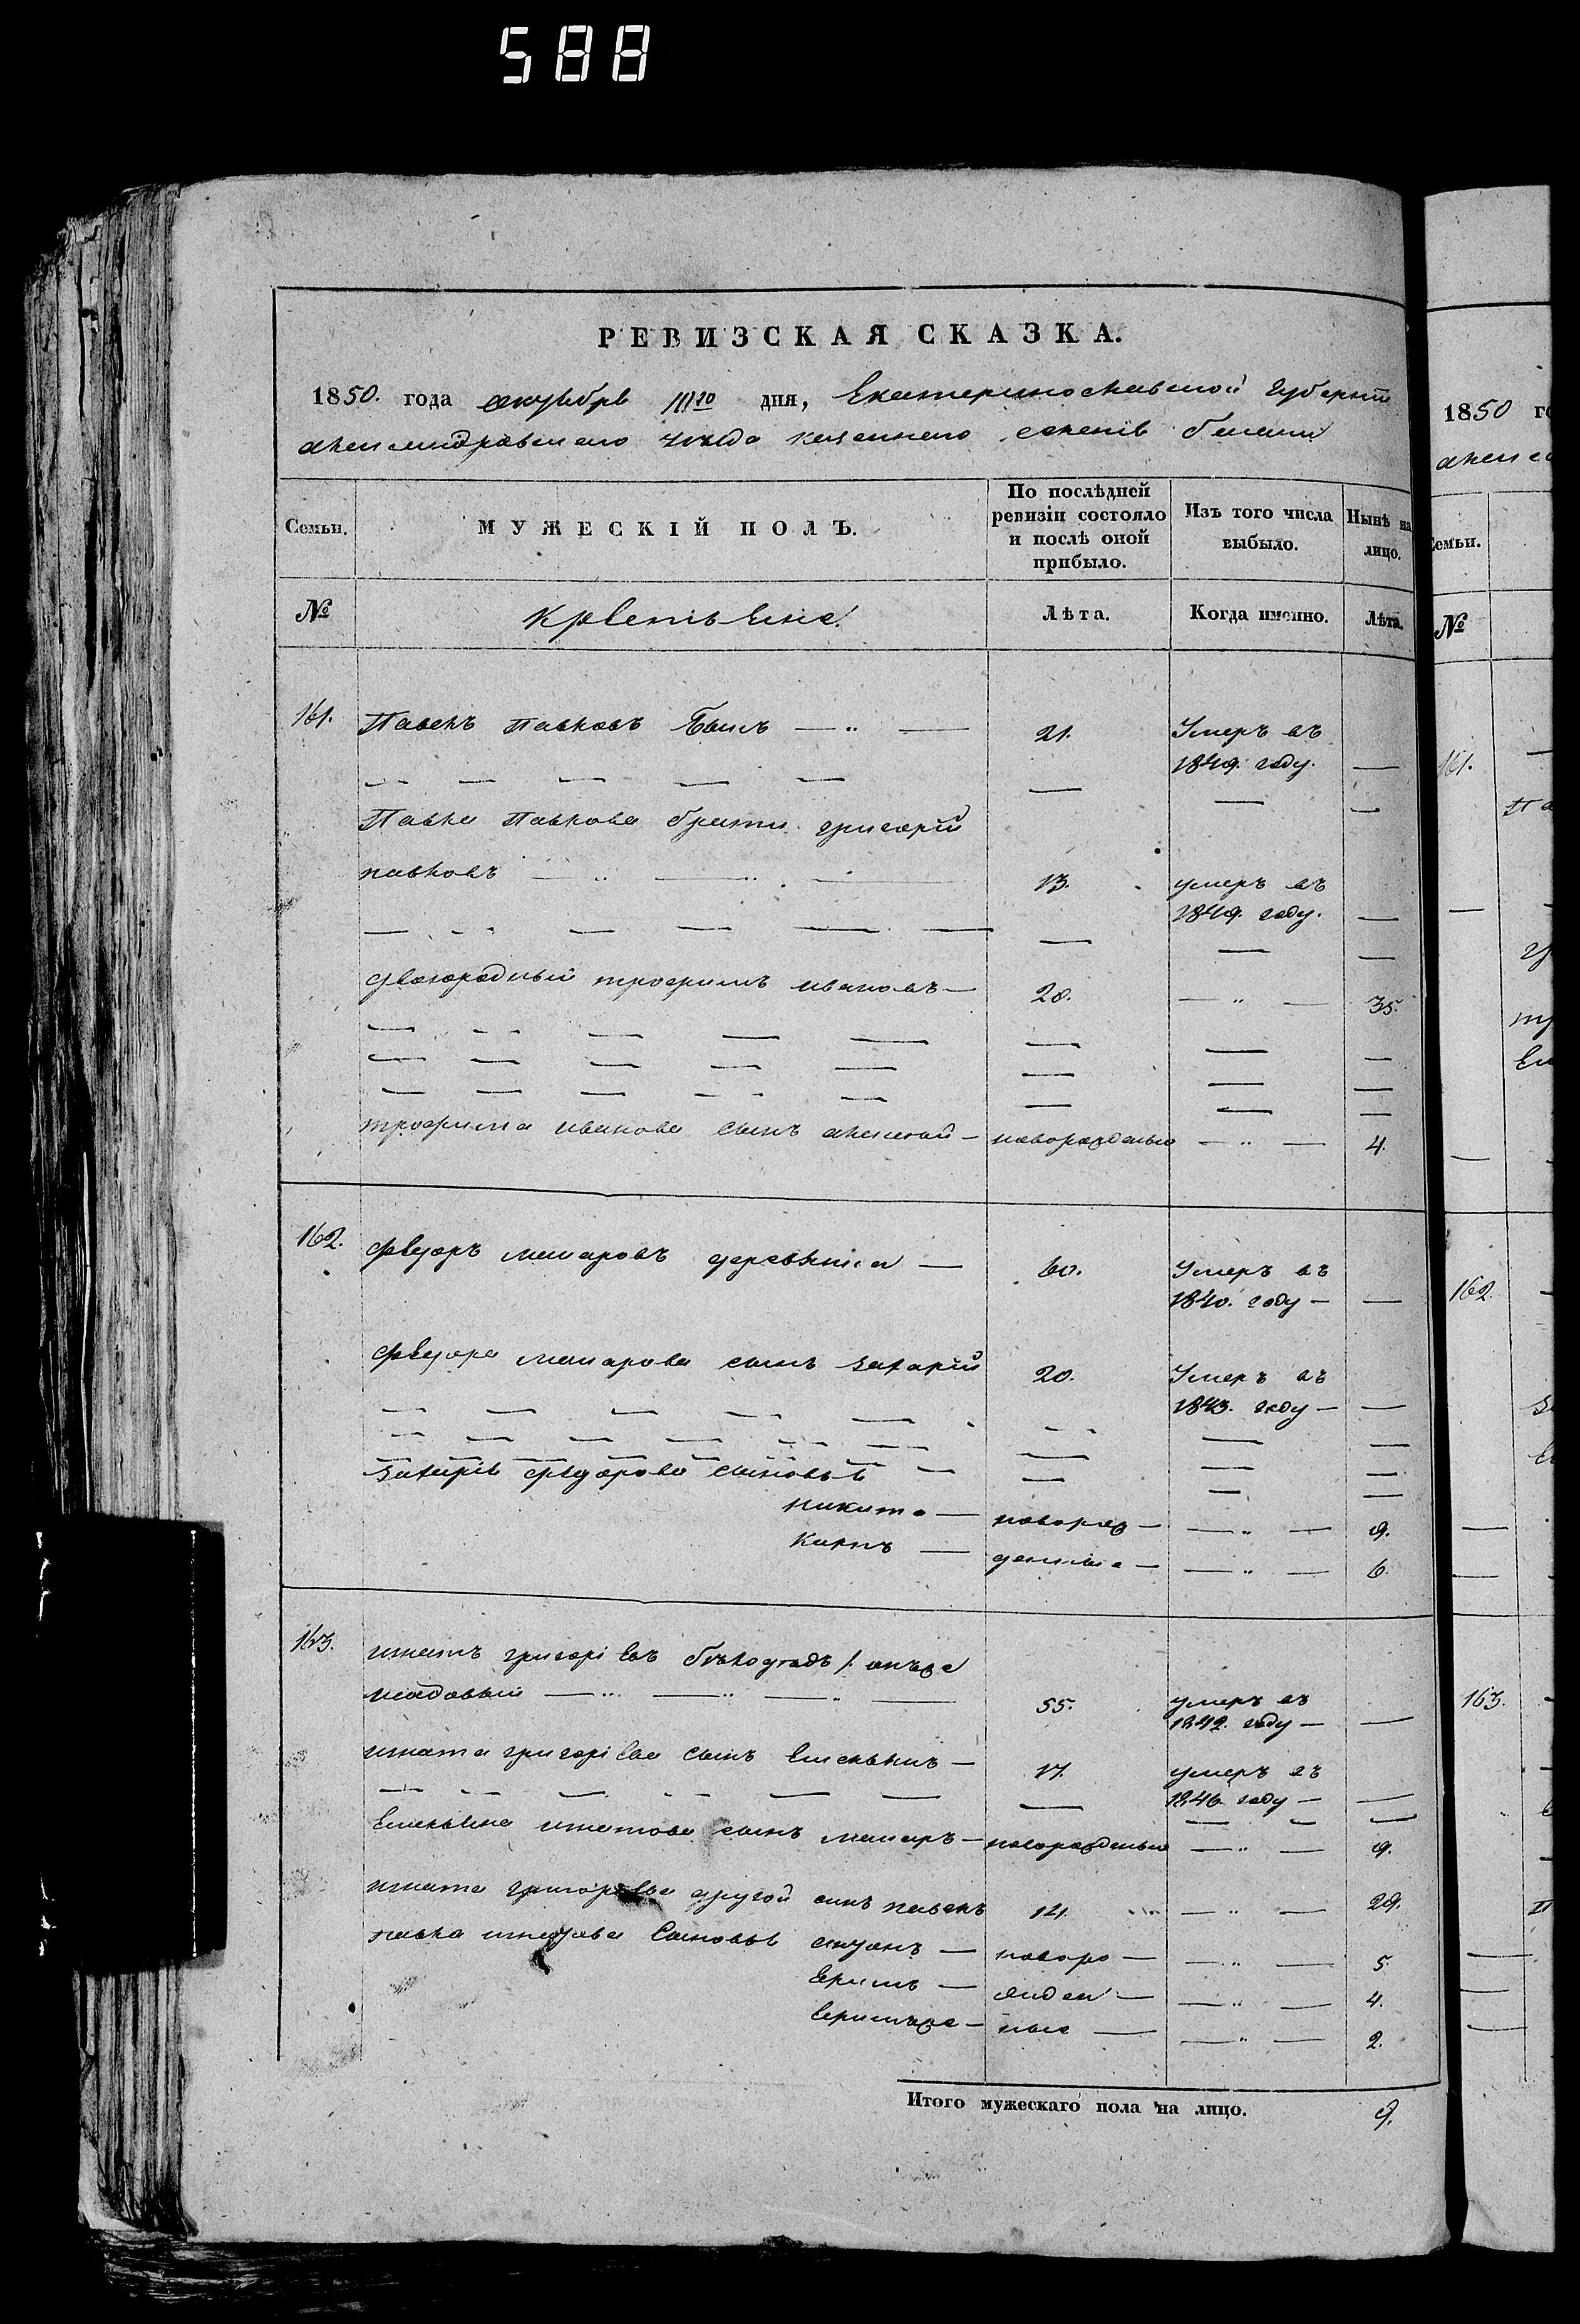 588
РЕВИЗСКАЯ СКАЗКА.
1850. года октября дня, Екатеринославской губерніи
александровскаго уѣзда казеннаго селенія
Семьи.
МУЖЕСКІЙ ПОЛЪ.
По послѣдней ревизіи состояло и послѣ оной прибыло.
Изъ того числа выбыло.
Нынѣ на лицо.
№
Лѣта.
Когда именно.
Лѣта.
161. Павелъ Павловъ — „ — 21. Умеръ въ
1849. году. —
Павла Павлова братъ григорій
павловъ — „ — „ — 13. умеръ въ
1849. году. —
двоюродный трофимъ ивановъ — — „ — 35.
трофима иванова сынъ алексѣй — новорожденый — „ — 4.
162. Федоръ макаровъ — 60. Умеръ въ
1840. году — —
Федора макарова сынъ захарій 20. Умеръ въ
1843. году — —
захарія федорова сыновья —
никита — новорож — — „ — 9.
карпъ — денные — — „ — 6.
163. игнатъ григоріевъ
— „ — „ — „ — 55. умеръ въ
1842. году — —
игната григоріева сынъ емельянъ — 17. умеръ въ
1846. году — —
емельяна игнатова сынъ макаръ — новорожденый — „ — 9.
игната григорьева другой сынъ павелъ 14. — „ — 29.
павла игнатова сыновья — новоро — — „ — 5.
— жден — — „ — 4.
— ные — — „ — 2.
Итого мужескаго пола на лицо. 9.
1850
Семьи.
№
161.
162.
163.